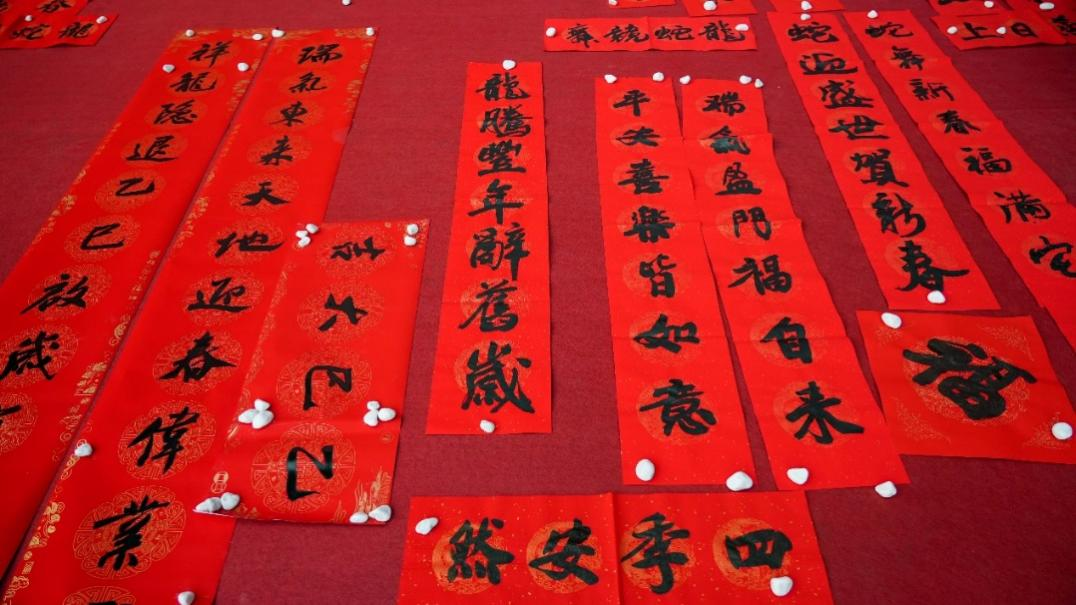 龍蛇競舞
祥龍隐退乙巳放歲
瑞氣東来天地迎春偉業
乙巳大吉
龍騰豐年辭舊歲
平安喜樂皆如意
瑞氣盈門福自来
蛇迎盛世賀新春
蛇舞新春福滿宅
福
四季安然